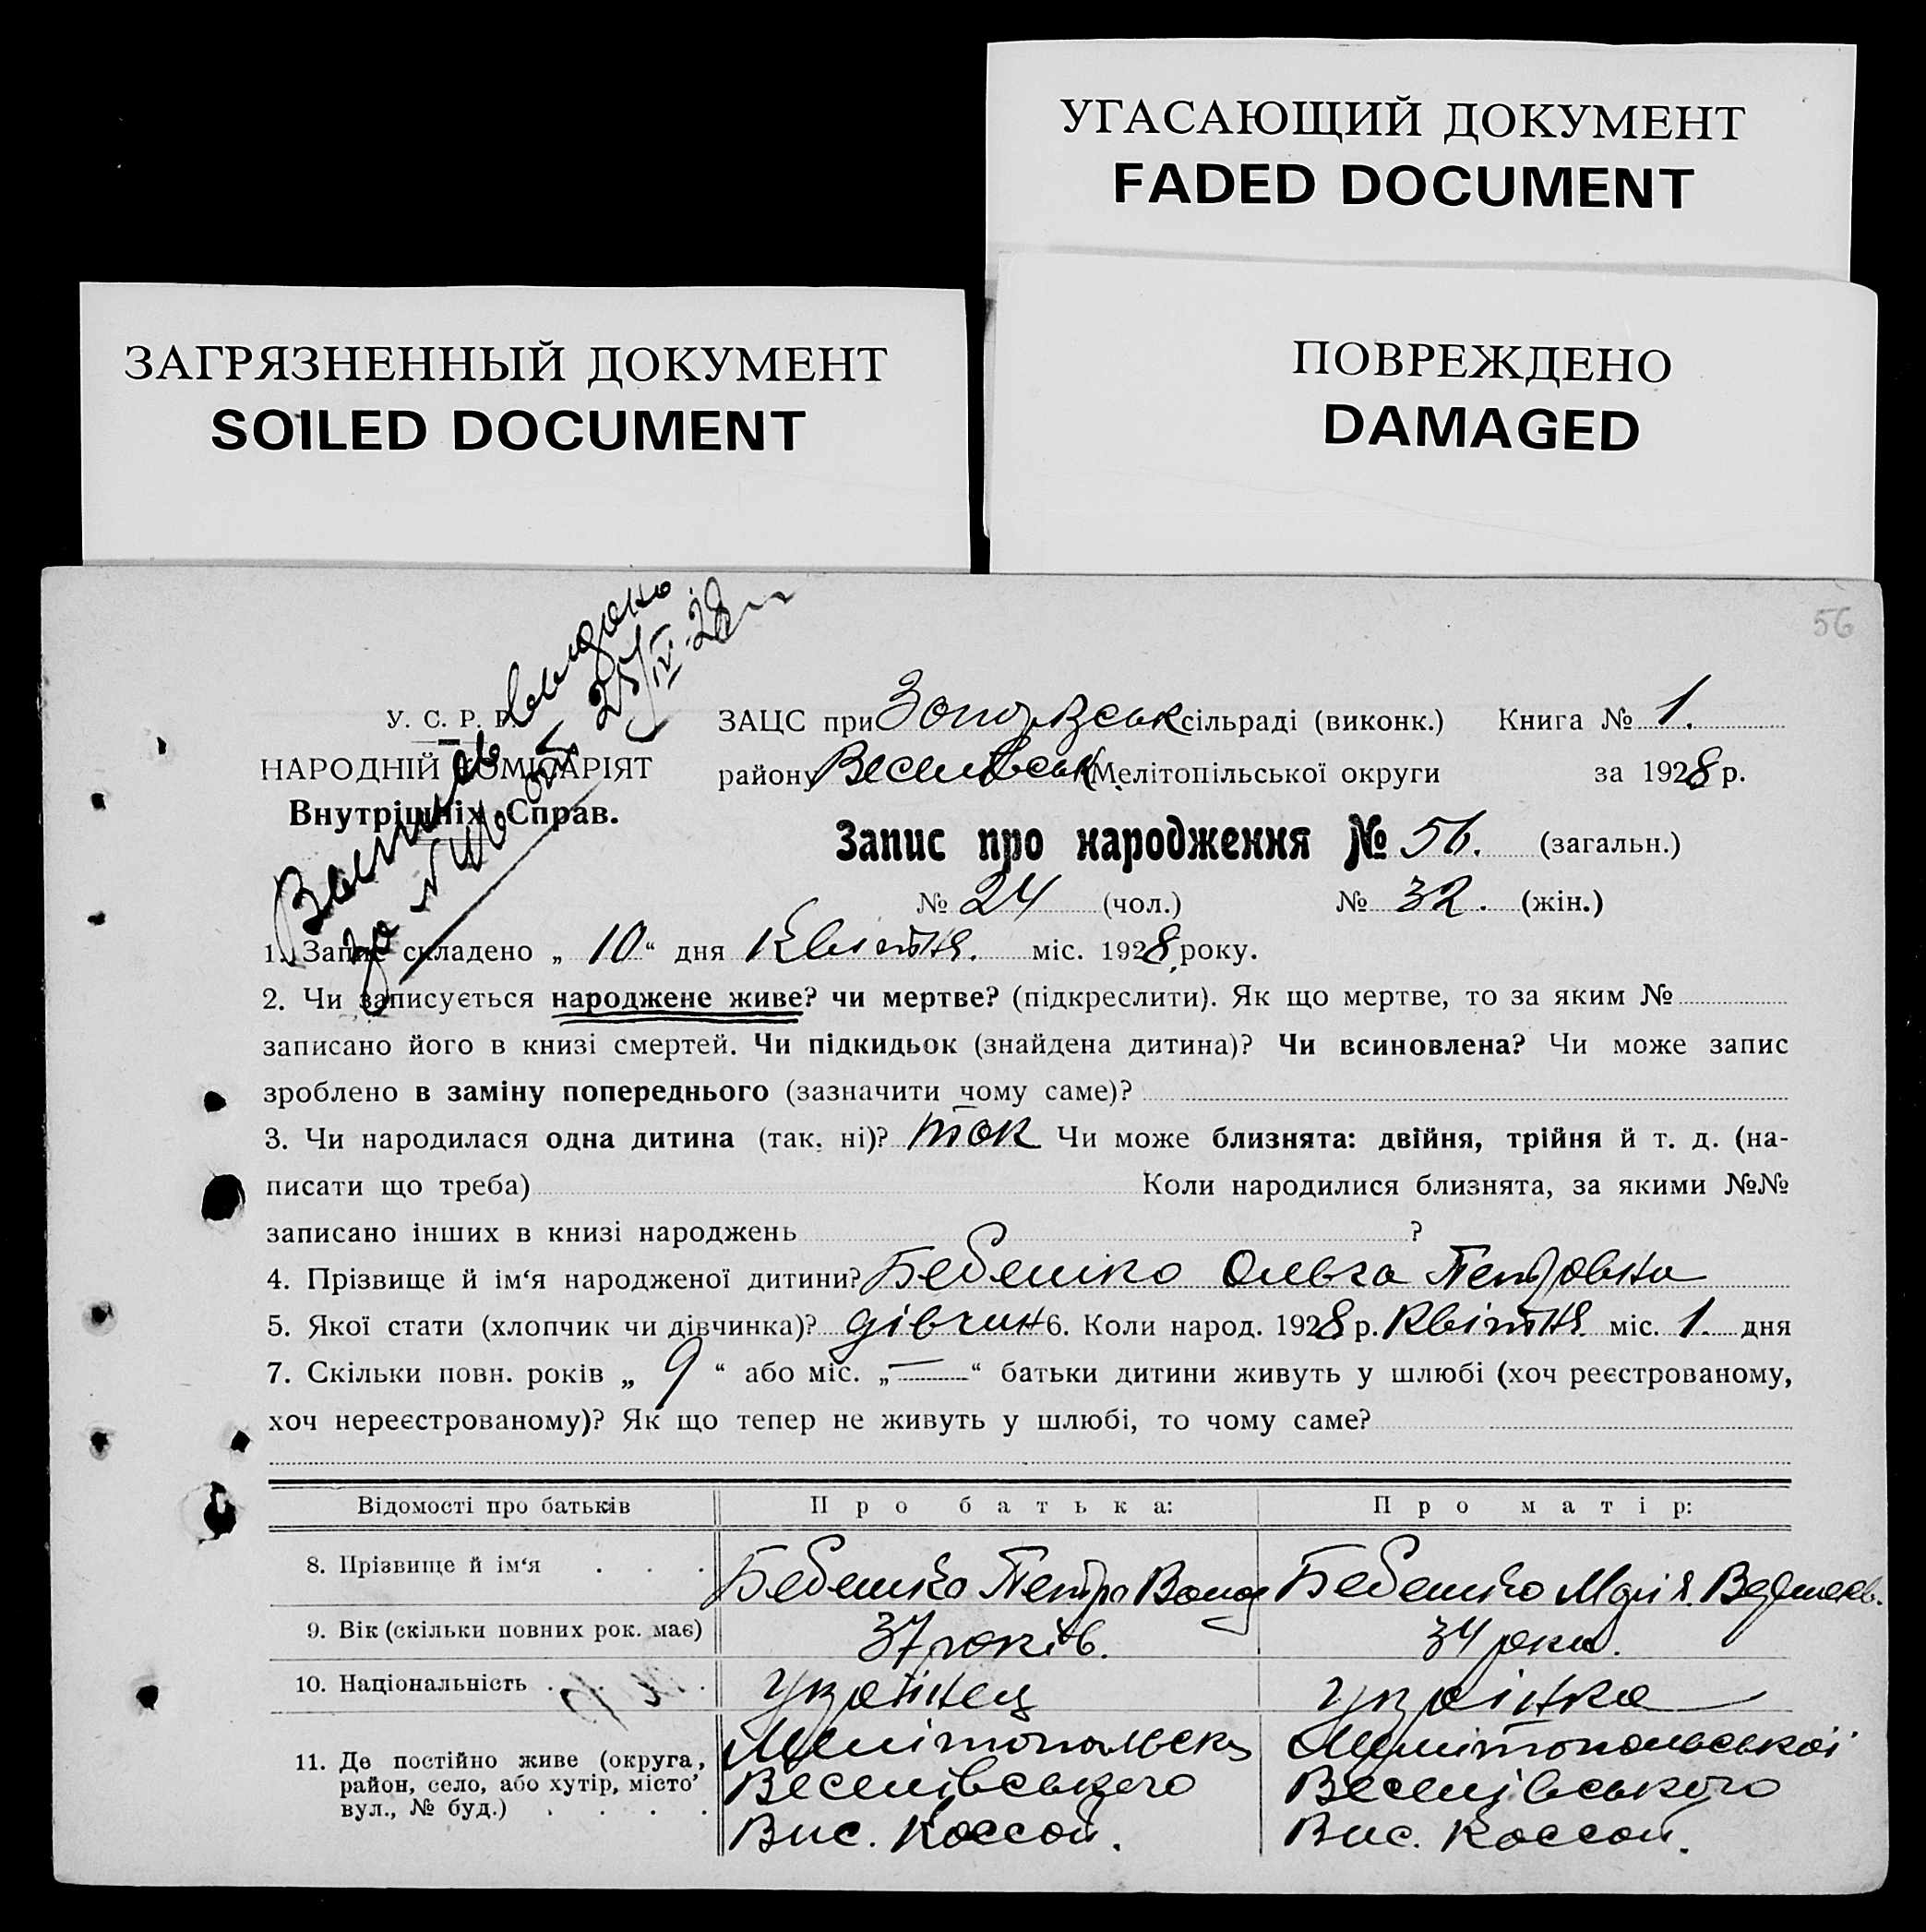 УГАСАЮЩИЙ ДОКУМЕНТ
FADED DOCUMENT
ЗАГРЯЗНЕННЫЙ ДОКУМЕНТ
SOILED DOCUMENT
ПОВРЕЖДЕНО
DAMAGED
56
У. С. Р. Р.
НАРОДНІЙ КОМІСАРІЯТ
Внутрішніх Справ.
видано
25/IV-28
ЗАЦС при сільраді (виконк.) Книга № 1.
району Веселівськ Мелітопільської округи за 1928 р.
Запис про народження № 56. (загальн.)
№ 24 (чол.) № 32. (жін.)
1. Запис складено „ 10 “ дня Квітня. міс. 1928 року.
2. Чи записується народжене живе? чи мертве? (підкреслити). Як що мертве, то за яким №
записано його в книзі смертей. Чи підкидьок (знайдена дитина)? Чи всиновлена? Чи може запис
зроблено в заміну попереднього (зазначити чому саме)?
3. Чи народилася одна дитина (так, ні)? так Чи може близнята: двійня, трійня й т. д. (на-
писати що треба) Коли народилися близнята, за якими №№
записано інших в книзі народжень ?
4. Прізвище й ім‘я народженої дитини? Бебешко Ольга Петровна
5. Якої стати (хлопчик чи дівчинка)? дівчин 6. Коли народ. 1928 р. Квітня міс. 1. дня
7. Скільки повн. років „ 9 “ або міс. „ — “ батьки дитини живуть у шлюбі (хоч реєстрованому,
хоч нереєстрованому)? Як що тепер не живуть у шлюбі, то чому саме?
Відомості про батьків Про батька: Про матір:
8. Прізвище й ім‘я . . . Бебешко Петро Бебешко Марія.
9. Вік (скільки повних рок. має) 37 років. 34 роки.
10. Національність . . . Українец Українка
11. Де постійно живе (округа, район, село, або хутір, місто’ вул., № буд.) . . . .
Мелітопольск Мелітопольської
Веселівського Веселівського
Вис. Коссой. Вис. Коссой.